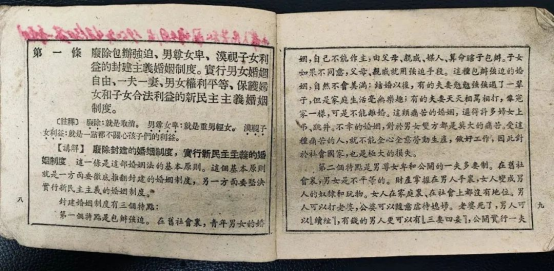 第一條　廢除包辦强迫、男尊女卑、漠視子女利益
的封建主義婚姻制度。實行男女婚姻
自由、一夫一妻、男女權利平等、保護婦
女和子女合法利益的新民主主義婚姻
制度。
【註釋】　廢除：就是取消。　男尊女卑：就是重男輕女。　漠視子
女利益：就是一點都不關心孩子們的利益。
【講解】　廢除封建的婚姻制度，實行新民主主義的婚
姻制度　這一條是這部婚姻法的基本原則。這個基本原則
就是一方面要徹底推翻封建的婚姻制度，另一方面要堅決
實行新民主主義的婚姻制度。
封建婚姻制度有三個特點：
第一個特點是包辦强迫。在舊社會裏，青年男女的婚
八
姻，自己不能作主，由父母、親戚、媒人、算命瞎子包辦。子女
如果不同意，父母、親戚就用强迫手段。這種包辦强迫的婚
姻，自然不會美滿：結婚以後，有的夫妻勉勉强强過了一輩
子，但是家庭生活毫無樂趣；有的夫妻天天相罵相打，像冤
家一樣，可是不能離婚。這樣痛苦的婚姻，逼得許多婦女上
吊、跳井。不幸的婚姻，對於男女雙方都是莫大的痛苦。受這
種痛苦的人，就不能全心全意勞動生產，做好工作。因此對
於社會國家，也是極大的損失。
第二個特點是男尊女卑和公開的一夫多妻制。在舊社
會裏，男女是不平等的。財產掌握在男人手裏，女人變成男
人的奴隸和玩物。女人在家庭裏、在社會上都沒有地位。男
人可以打老婆，公婆可以隨意虐待媳婦。老婆死了，男人可
以『續絃』，有錢的男人更可以有『三妻四妾』，公開實行一夫
九